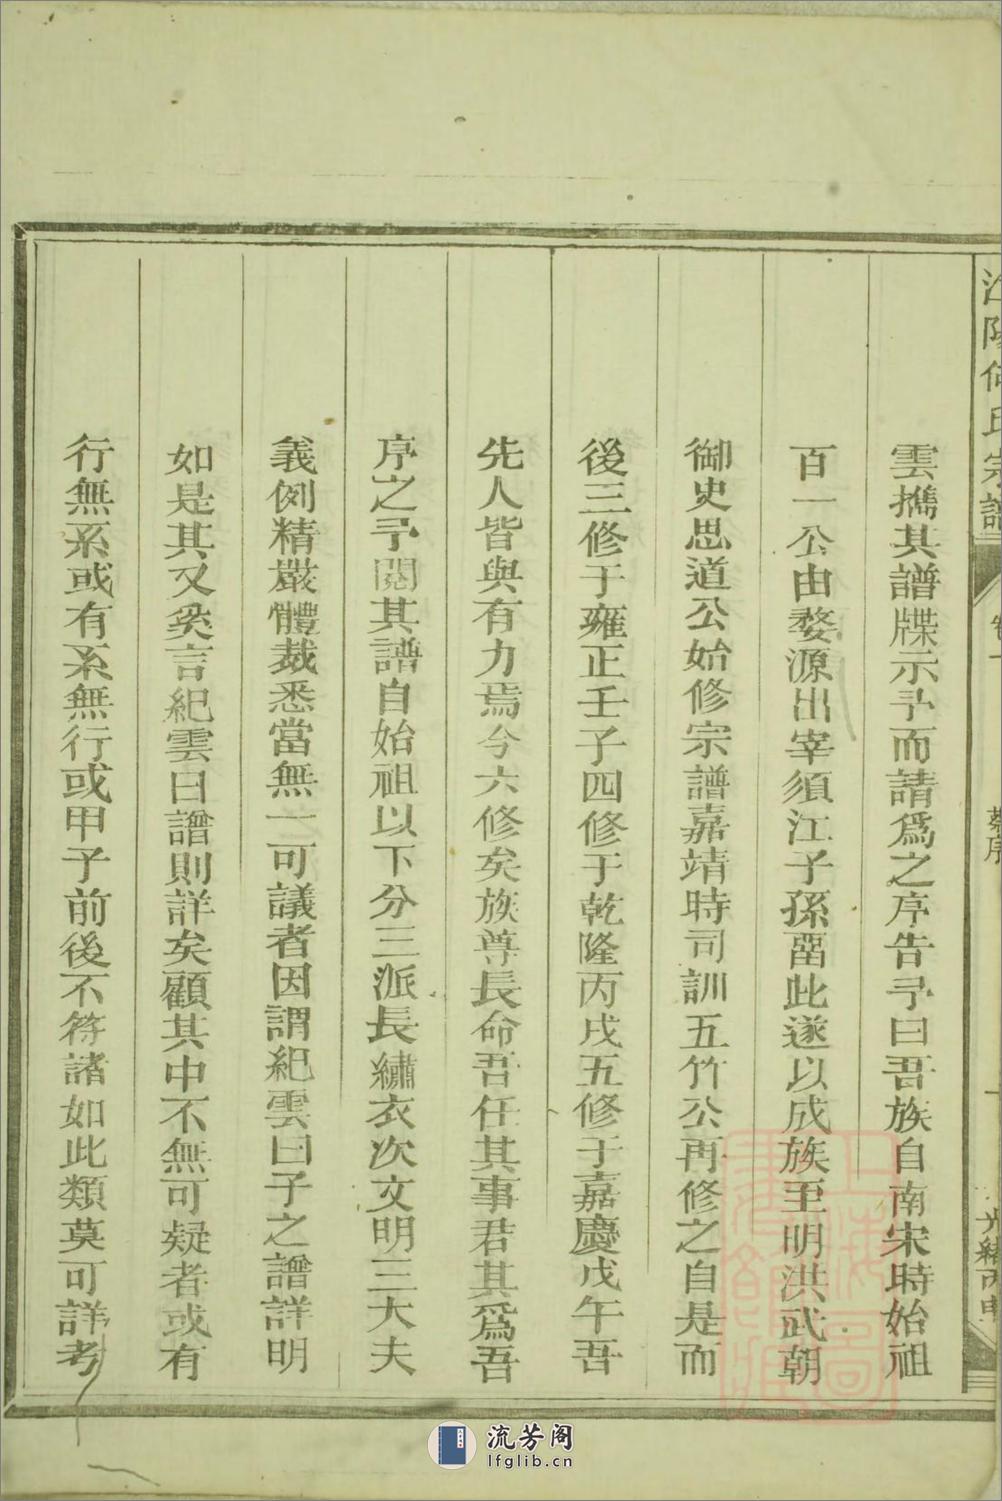 江陰何氏宗譜
卷一
蔡序
光緒丙申
雲擕其譜牒示予而請爲之序告予曰吾族自南宋時始祖
百一公由婺源出宰須江子孫畱此遂以成族至明洪武朝
御史思道公始修宗譜嘉靖時司訓五竹公再修之自是而
後三修于雍正壬子四修于乾隆丙戌五修于嘉慶戊午吾
先人皆與有力焉今六修矣族尊長命吾任其事君其爲吾
序之予閱其譜自始祖以下分三派長繡衣次文明三大夫
義例精嚴體裁悉當無一可議者因謂紀雲曰子之譜詳明
如是其又奚言紀雲曰譜則詳矣顧其中不無可疑者或有
行無系或有系無行或甲子前後不符諸如此類莫可詳考
流芳阁
lfglib.cn